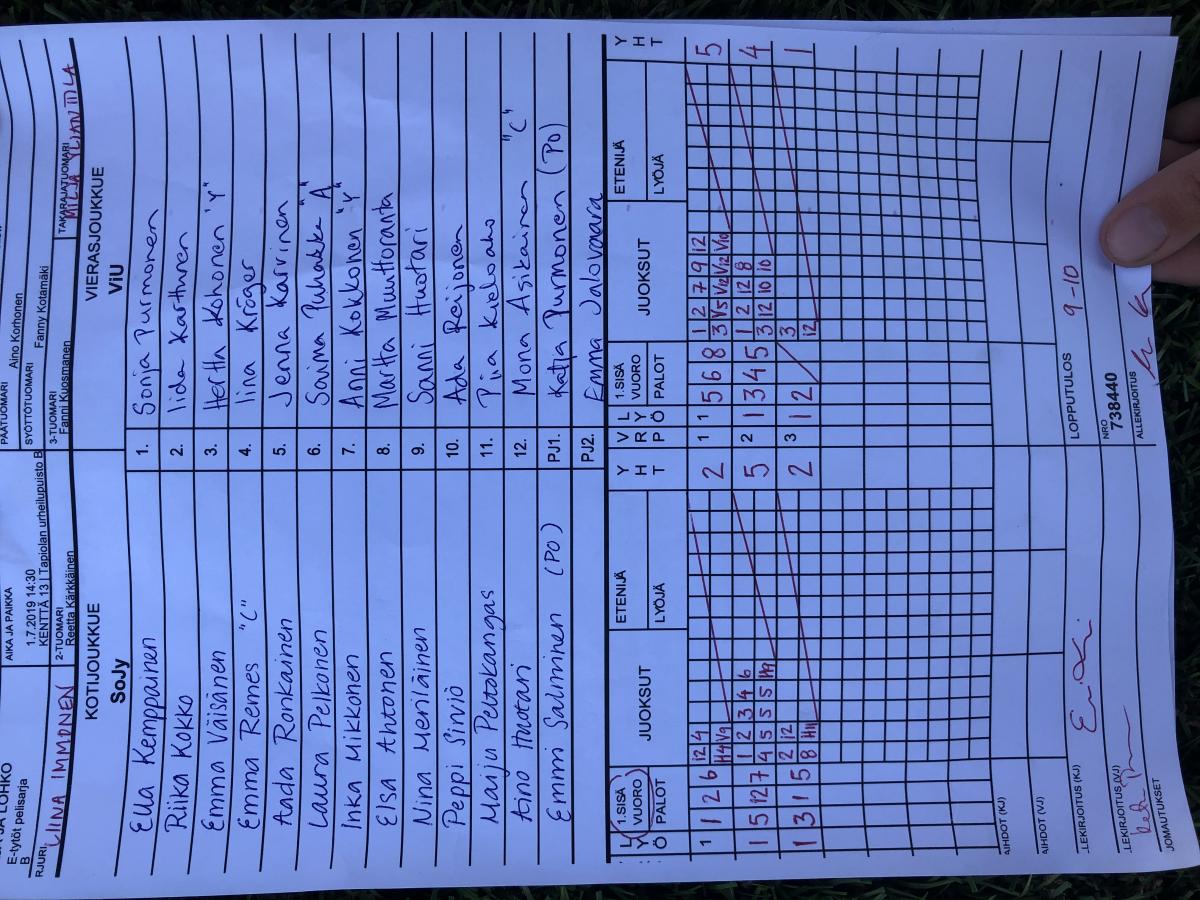 JA LOHKO
E-tytöt pelisarja
B
AIKA JA PAIKKA
1.7.2019 14:30
KENTTÄ 13 | Tapiolan urheilupuisto B
PÄÄTUOMARI
Aino Korhonen
SYÖTTÖTUOMARI
Fanny Kotamäki
RJURI
LIINA IMMONEN
2-TUOMARI
Reetta Kärkkäinen
3-TUOMARI
Fanni Kuosmanen
TAKARAJATUOMARI
KOTIJOUKKUE
SoJy
VIERASJOUKKUE
ViU
Ella Kemppainen 1. Sonja Purmonen
Riika Kokko 2. Iida Karttunen
Emma Väisänen 3. Hertta Kohonen "Y"
Emma Remes "C" 4. Iina Kröger
Aada Ronkainen 5. Jenna Karvinen
Laura Pelkonen 6. Saima Puhakka "A"
Inka Mikkonen 7. Anni Kokkonen "Y"
Elsa Ahtonen 8. Martta Muuttoranta
Nina Meriläinen 9. Sanni Huotari
Peppi Sirviö 10. Ada Reijonen
Maija Peltokangas 11. Piia Kieloaho
Aino Huotari 12. Mona Asikainen "C"
Emmi Salminen (PO) PJ1. Katja Purmonen (PO)
PJ2. Emma Jalovaara
L Y Ö 1.SISÄ VUORO PALOT JUOKSUT ETENIJÄ LYÖJÄ Y H T V R P L Y Ö 1.SISÄ VUORO PALOT JUOKSUT ETENIJÄ LYÖJÄ Y H T
1 1 2 6 i2 4 2 1 1 5 6 8 1 2 7 9 i2 5
H4 V9 3 V5 V12 V12 V10
1 5 12 7 1 2 3 4 6 5 2 1 3 4 5 1 2 12 8 4
4 5 5 5 H9 3 12 10 10
1 3 1 5 2 i2 2 3 1 2 3 1
8 H11 i2
AIHDOT (KJ)
AIHDOT (VJ)
LOPPUTULOS 9-10
LEKIRJOITUS (KJ)
NRO
738440
LEKIRJOITUS (VJ)
ALLEKIRJOITUS
JOMAUTUKSET